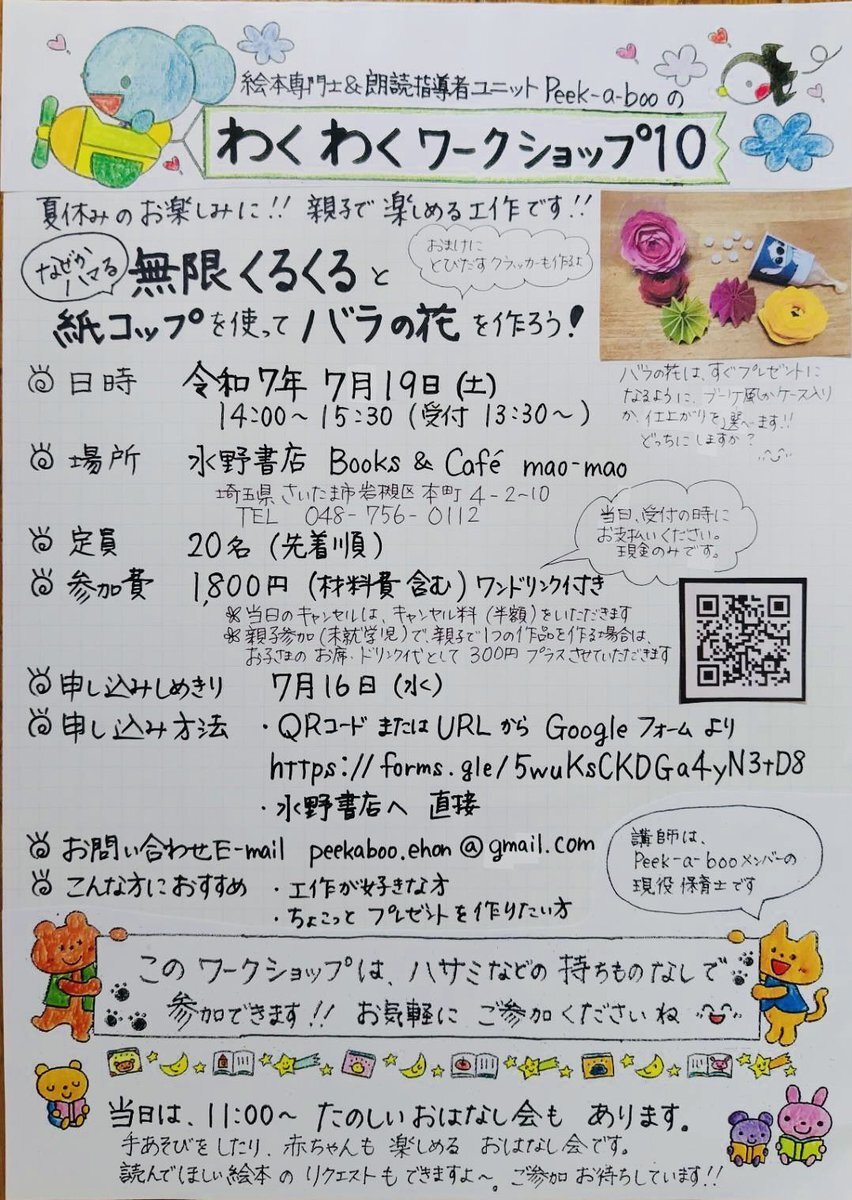 絵本専門士&朗読指導者ユニット Peek-a-booの
わくわくワークショップ10
夏休みのお楽しみに!! 親子で楽しめる工作です!!
なぜか
ハマる
無限くるくると
おまけに
とびだすクラッカーも作るよ
紙コップを使ってバラの花を作ろう!
バラの花は、すぐプレゼントに
なるように、ブーケ風かケース入り
か、仕上がりを選べます!!
どっちにしますか?
日時 令和7年 7月19日(土)
14:00~15:30(受付 13:30~)
場所 水野書店 Books & Café mao-mao
埼玉県さいたま市岩槻区本町4-2-10
TEL 048-756-0112
定員 20名(先着順)
当日、受付の時に
お支払いください。
現金のみです。
参加費 1,800円(材料費含む)ワンドリンク付き
※当日のキャンセルは、キャンセル料(半額)をいただきます
※親子参加(未就学児)で、親子で1つの作品を作る場合は、
お子さまのお席・ドリンク代として300円プラスさせていただきます
申し込みしめきり 7月16日(水)
申し込み方法 ・QRコードまたはURLから Googleフォームより
https://forms.gle/5wuKsCKDGa4yN3tD8
・水野書店へ 直接
お問い合わせE-mail peekaboo.ehon@gmail.com
こんな方におすすめ ・工作が好きな方
・ちょこっとプレゼントを作りたい方
講師は、
Peek-a-booメンバーの
現役保育士です
このワークショップは、ハサミなどの持ちものなしで
参加できます!! お気軽にご参加くださいね
当日は、11:00~ たのしいおはなし会も あります。
手あそびをしたり、赤ちゃんも楽しめる おはなし会です。
読んでほしい絵本のリクエストもできますよ~。ご参加お待ちしています!!